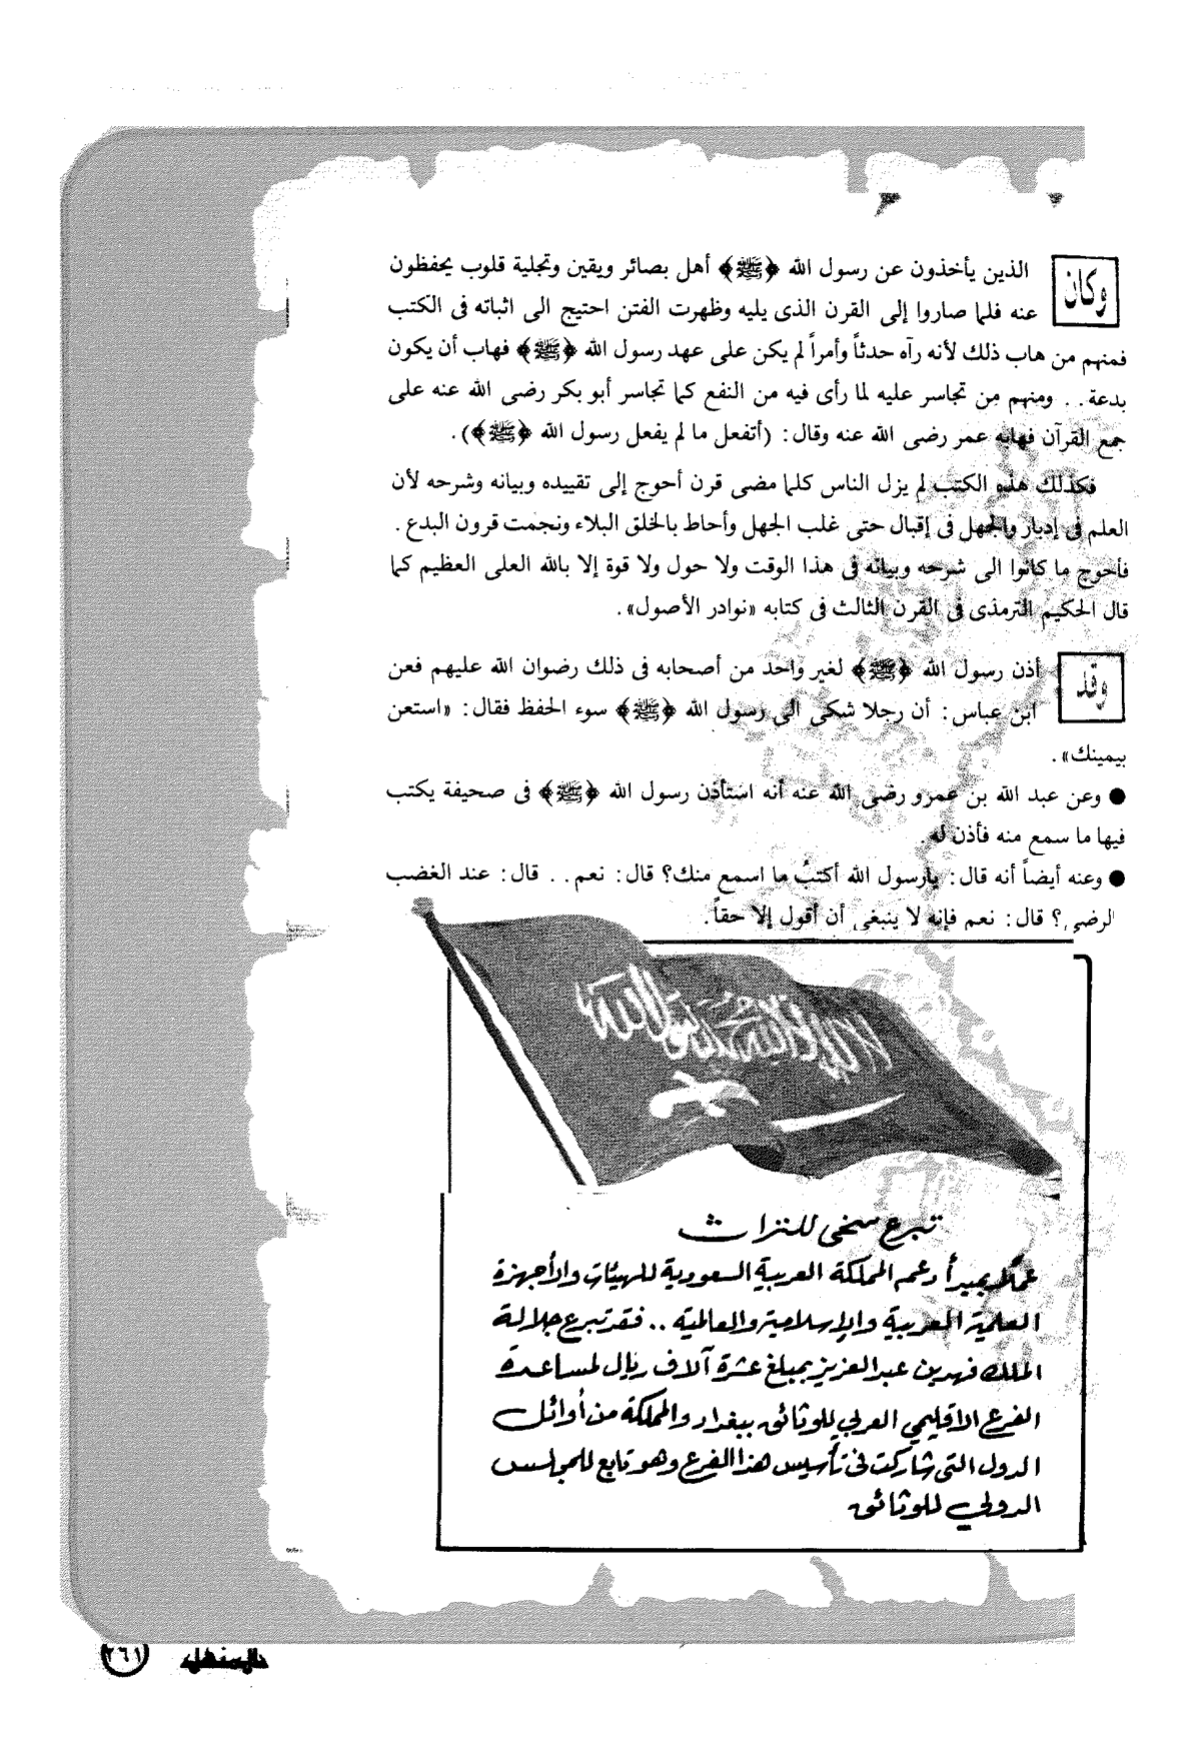 وكان الذين يأخذون عن رسول الله ﴿ﷺ﴾ أهل بصائر ويقين وتجلية قلوب يحفظون
عنه فلما صاروا إلى القرن الذى يليه وظهرت الفتن احتيج الى اثباته فى الكتب
فمنهم من هاب ذلك لأنه رآه حدثاً وأمراً لم يكن على عهد رسول الله ﴿ﷺ﴾ فهاب أن يكون
بدعة . . ومنهم من تجاسر عليه لما رأى فيه من النفع كما تجاسر أبو بكر رضى الله عنه على
جمع القرآن فهابه عمر رضى الله عنه وقال : (أتفعل ما لم يفعل رسول الله ﴿ﷺ﴾) .
فكذلك هذه الكتب لم يزل الناس كلما مضى قرن أحوج إلى تقييده وبيانه وشرحه لأن
العلم فى إدبار والجهل فى إقبال حتى غلب الجهل وأحاط بالخلق البلاء ونجمت قرون البدع .
فأحوج ما كانوا الى شرحه وبيانه فى هذا الوقت ولا حول ولا قوة إلا بالله العلى العظيم كما
قال الحكيم الترمذى فى القرن الثالث فى كتابه «نوادر الأصول» .
وقد أذن رسول الله ﴿ﷺ﴾ لغير واحد من أصحابه فى ذلك رضوان الله عليهم فعن
ابن عباس : أن رجلا شكى الى رسول الله ﴿ﷺ﴾ سوء الحفظ فقال : «استعن
بيمينك» .
● وعن عبد الله بن عمرو رضى الله عنه أنه استأذن رسول الله ﴿ﷺ﴾ فى صحيفة يكتب
فيها ما سمع منه فأذن له .
● وعنه أيضاً أنه قال : يارسول الله أكتبُ ما اسمع منك؟ قال : نعم . . قال : عند الغضب
الرضى؟ قال : نعم فإنه لا ينبغى أن أقول إلا حقاً .
لا إله إلا الله محمد رسول الله
تبرع سخى للتراث
عملاً بمبدأ دعم المملكة العربية السعودية للهيئات والأجهزة
العلمية العربية والإسلامية والعالمية .. فقد تبرع جلالة
الملك فهد بن عبد العزيز بمبلغ عشرة آلاف ريال لمساعدة
الفرع الاقليمي العربي للوثائق ببغداد والمملكة من أوائل
الدول التى شاركت فى تأسيس هذا الفرع وهو تابع للمجلس
الدولي للوثائق
المنهل ٢٦١